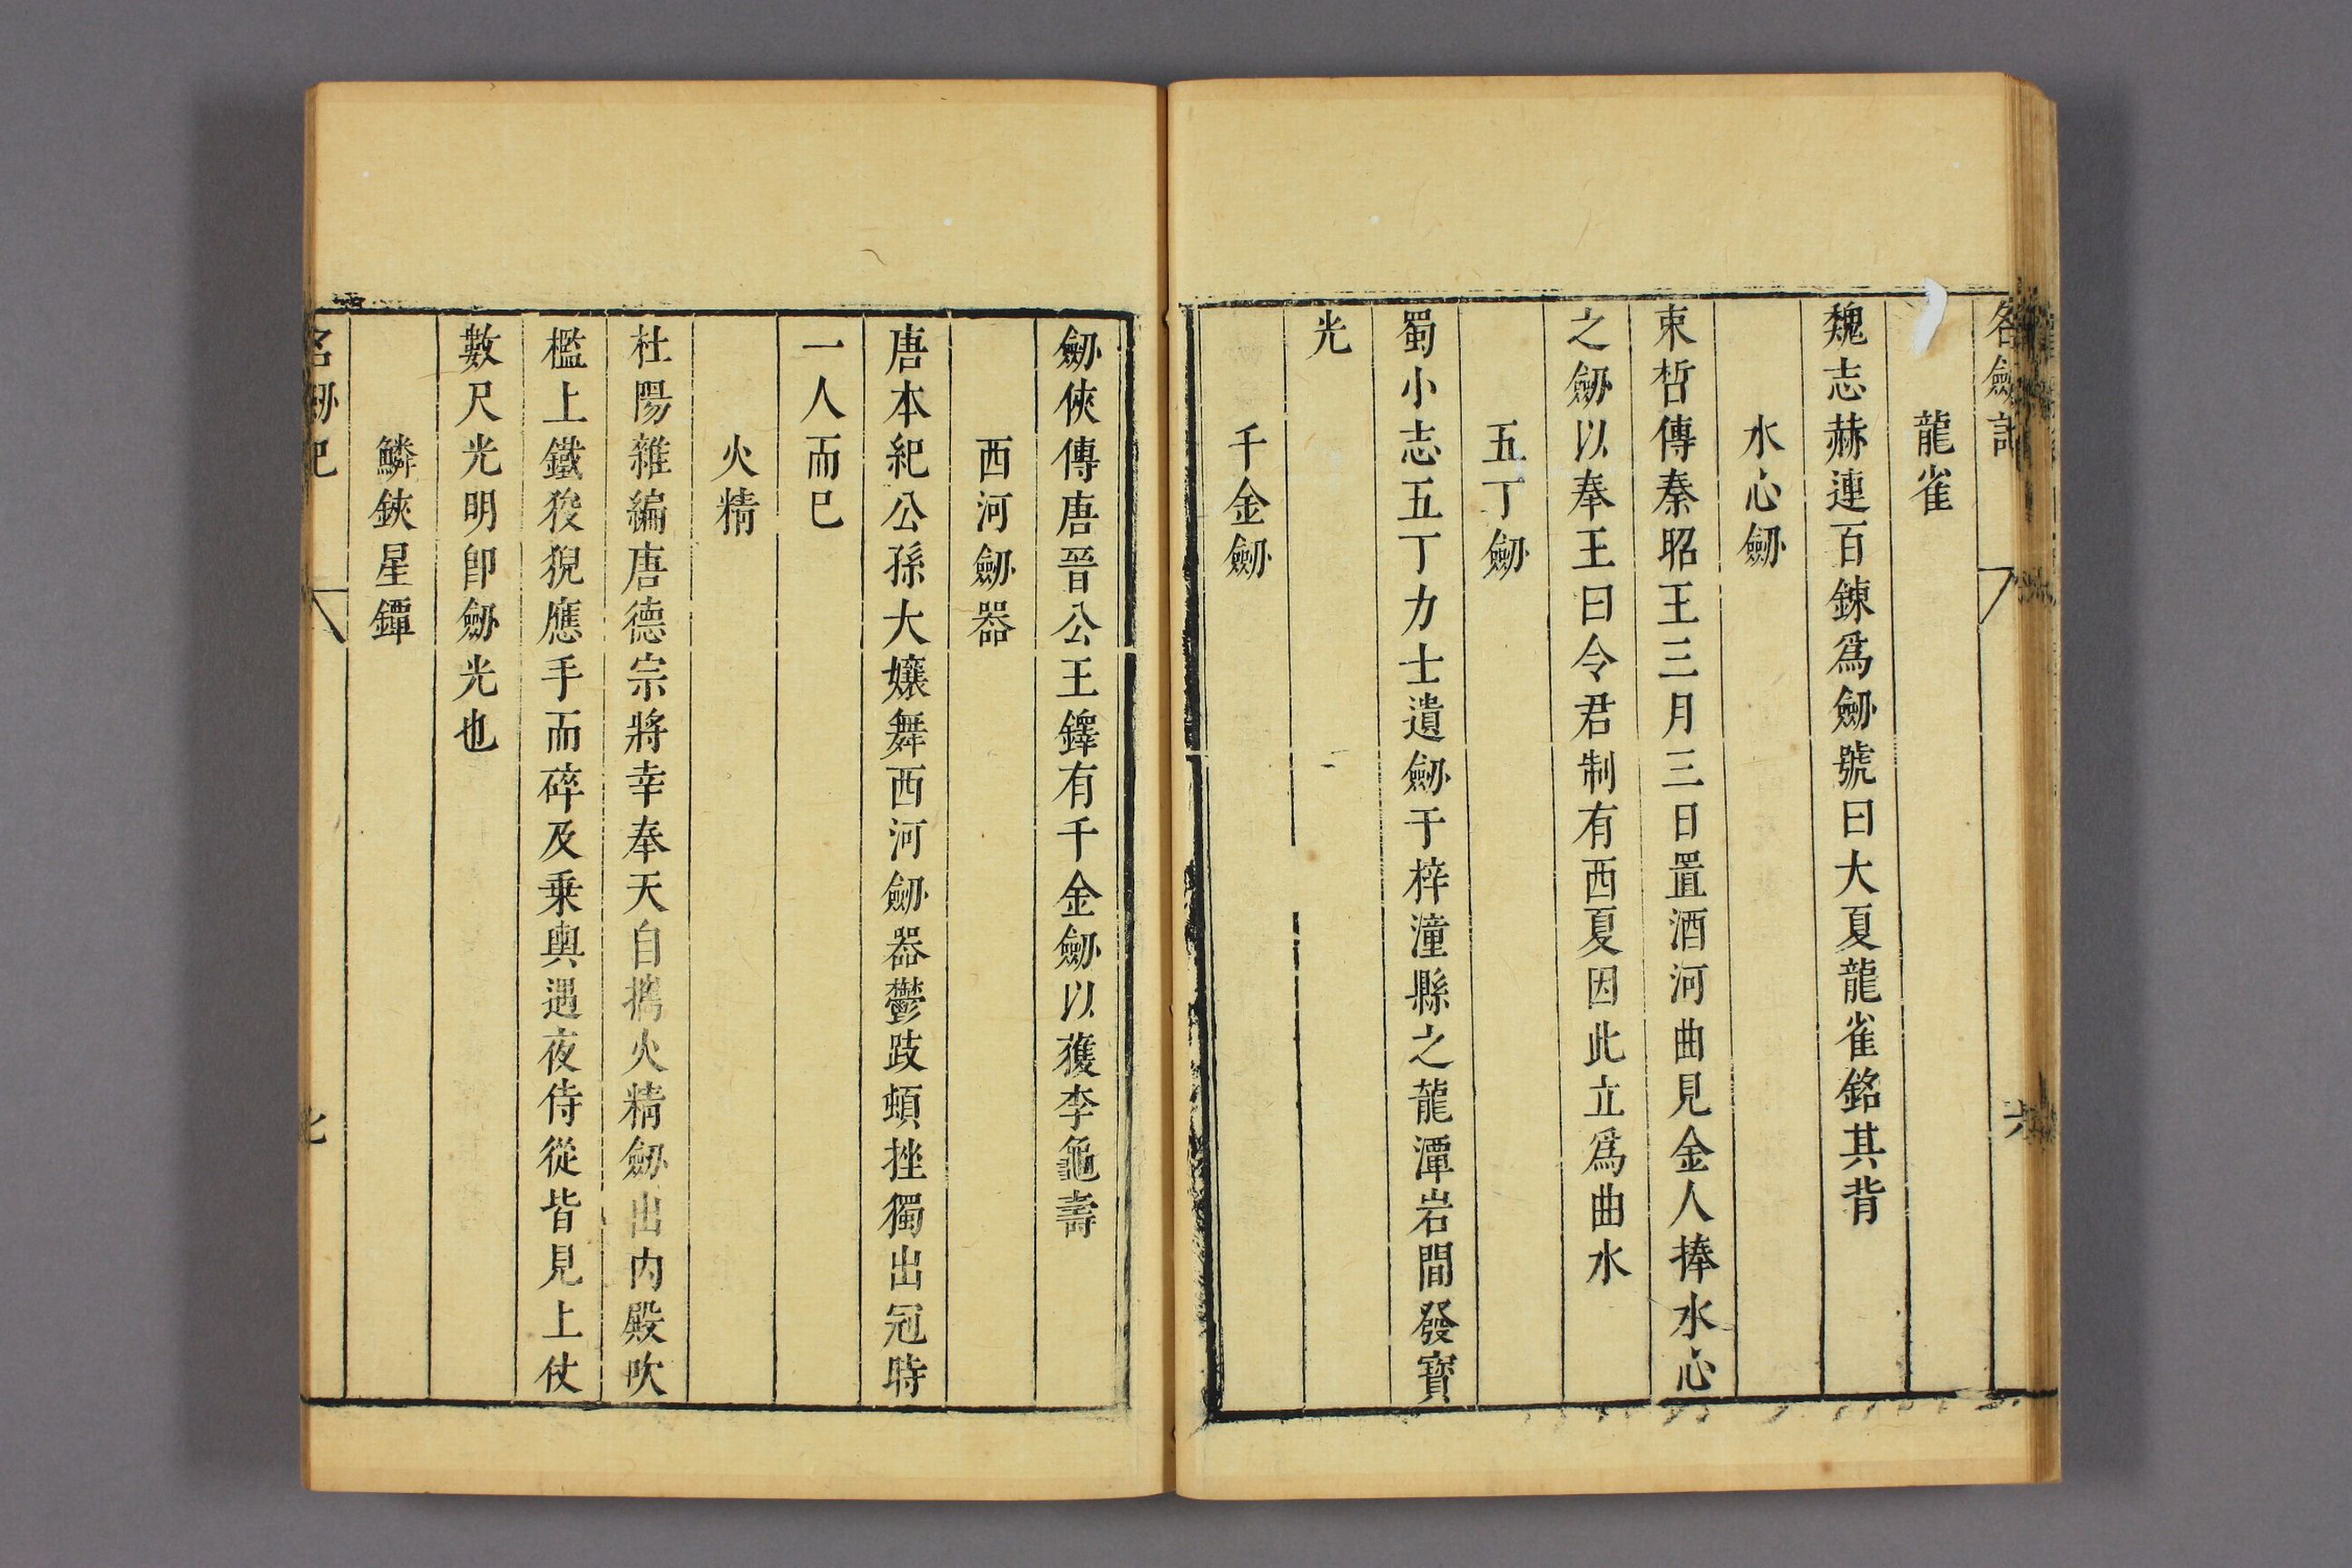 名劍記
六
龍雀
魏志赫連百鍊爲劒號曰大夏龍雀銘其背
水心劒
束晳傳秦昭王三月三日置酒河曲見金人捧水心
之劒以奉王曰令君制有西夏因此立爲曲水
五丁劒
蜀小志五丁力士遺劒于梓潼縣之龍潭岩間發寶
光
千金劒
劒俠傳唐晉公王鐸有千金劒以獲李龜壽
西河劒器
唐本紀公孫大孃舞西河劒器鬱跂頓挫獨出冠時
一人而已
火精
杜陽雜編唐德宗將幸奉天自攜火精劒出内殿吹
檻上鐵狻猊應手而碎及乗輿遇夜侍從皆見上仗
數尺光明卽劒光也
鱗鋏星鐔
名劒記
七